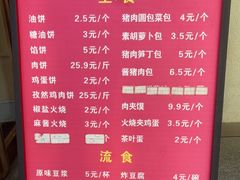 主食
油饼 2.5元/个 猪肉圆包菜包 4元/个
糖油饼 3元/个 素胡萝卜包 3.5元/个
馅饼 5元/个 猪肉笋丁包 5元/个
肉饼 25.9元/斤 酱猪肉包 6.5元/个
鸡蛋饼 2元/个
孜然鸡肉饼 25元/斤 肉夹馍 9.9元/个
椒盐火烧 2元/个 火烧夹鸡蛋 3.5元/个
麻酱火烧 3元/个 茶叶蛋 2元/个
流食
原味豆浆 5元/杯 炸豆腐 4元/碗